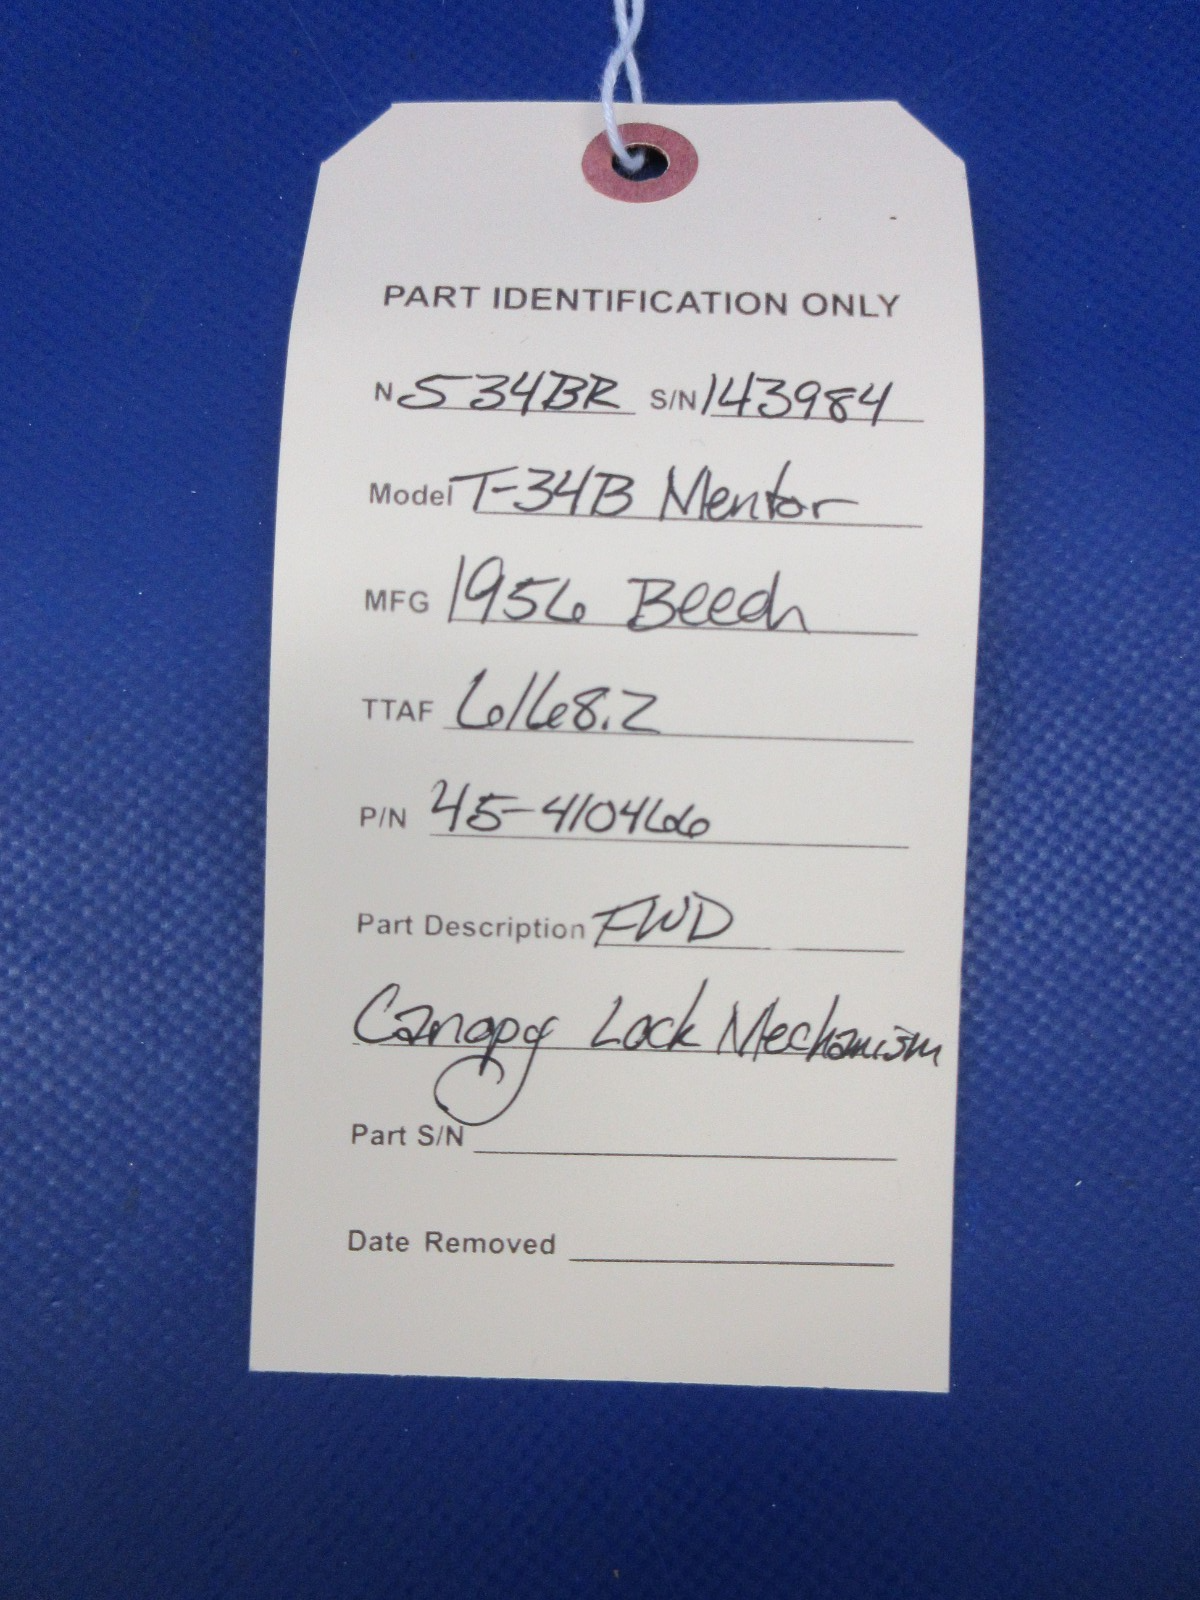 PART IDENTIFICATION ONLY
N 534BR S/N 143984
Model T-34B Mentor
MFG 1956 Beech
TTAF 6168.2
P/N 45-410466
Part Description FWD
Canopy Lock Mechanism
Part S/N
Date Removed